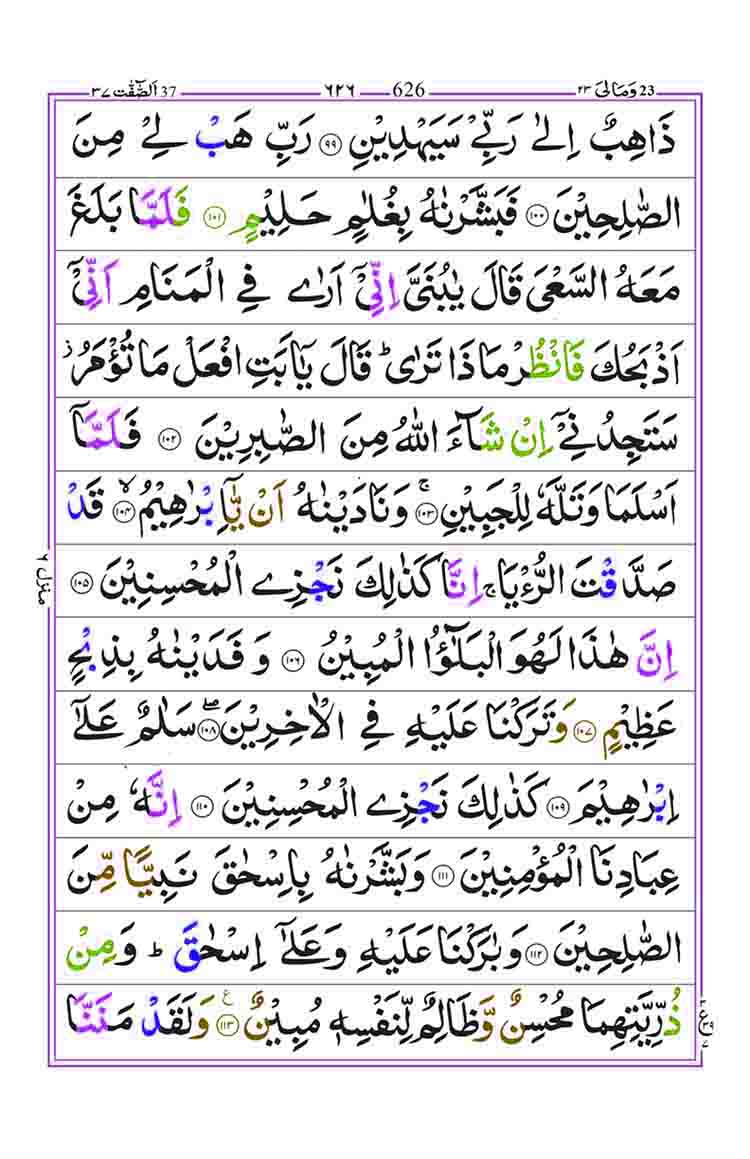 37 اَلصّٰٓفّٰت ٣٧ ٦٢٦ 626 23 وَمَالِيَ ٢٣
ذَاهِبٌ اِلٰى رَبِّىْ سَيَهْدِيْنِ ﴿٩٩﴾ رَبِّ هَبْ لِىْ مِنَ
الصّٰلِحِيْنَ ﴿١٠٠﴾ فَبَشَّرْنٰهُ بِغُلٰمٍ حَلِيْمٍ ﴿١٠١﴾ فَلَمَّا بَلَغَ
مَعَهُ السَّعْىَ قَالَ يٰبُنَىَّ اِنِّىْۤ اَرٰى فِى الْمَنَامِ اَنِّىْۤ
اَذْبَحُكَ فَانْظُرْ مَاذَا تَرٰىؕ قَالَ يٰۤاَبَتِ افْعَلْ مَا تُؤْمَرُؗ
سَتَجِدُنِىْۤ اِنْ شَآءَ اللّٰهُ مِنَ الصّٰبِرِيْنَ ﴿١٠٢﴾ فَلَمَّاۤ
اَسْلَمَا وَتَلَّهٗ لِلْجَبِيْنِۚ ﴿١٠٣﴾ وَنَادَيْنٰهُ اَنْ يّٰۤاِبْرٰهِيْمُۙ ﴿١٠٤﴾ قَدْ
صَدَّقْتَ الرُّءْيَاۚ اِنَّا كَذٰلِكَ نَجْزِى الْمُحْسِنِيْنَ ﴿١٠٥﴾
اِنَّ هٰذَا لَهُوَ الْبَلٰٓؤُا الْمُبِيْنُ ﴿١٠٦﴾ وَفَدَيْنٰهُ بِذِبْحٍ
عَظِيْمٍ ﴿١٠٧﴾ وَتَرَكْنَا عَلَيْهِ فِى الْاٰخِرِيْنَۖ ﴿١٠٨﴾ سَلٰمٌ عَلٰٓى
اِبْرٰهِيْمَ ﴿١٠٩﴾ كَذٰلِكَ نَجْزِى الْمُحْسِنِيْنَ ﴿١١٠﴾ اِنَّهٗ مِنْ
عِبَادِنَا الْمُؤْمِنِيْنَ ﴿١١١﴾ وَبَشَّرْنٰهُ بِاِسْحٰقَ نَبِيًّا مِّنَ
الصّٰلِحِيْنَ ﴿١١٢﴾ وَبٰرَكْنَا عَلَيْهِ وَعَلٰٓى اِسْحٰقَؕ وَمِنْ
ذُرِّيَّتِهِمَا مُحْسِنٌ وَّظَالِمٌ لِّنَفْسِهٖ مُبِيْنٌ ﴿١١٣﴾ع وَلَقَدْ مَنَنَّا
منزل ٦
٣ ع ٣٩ ٧